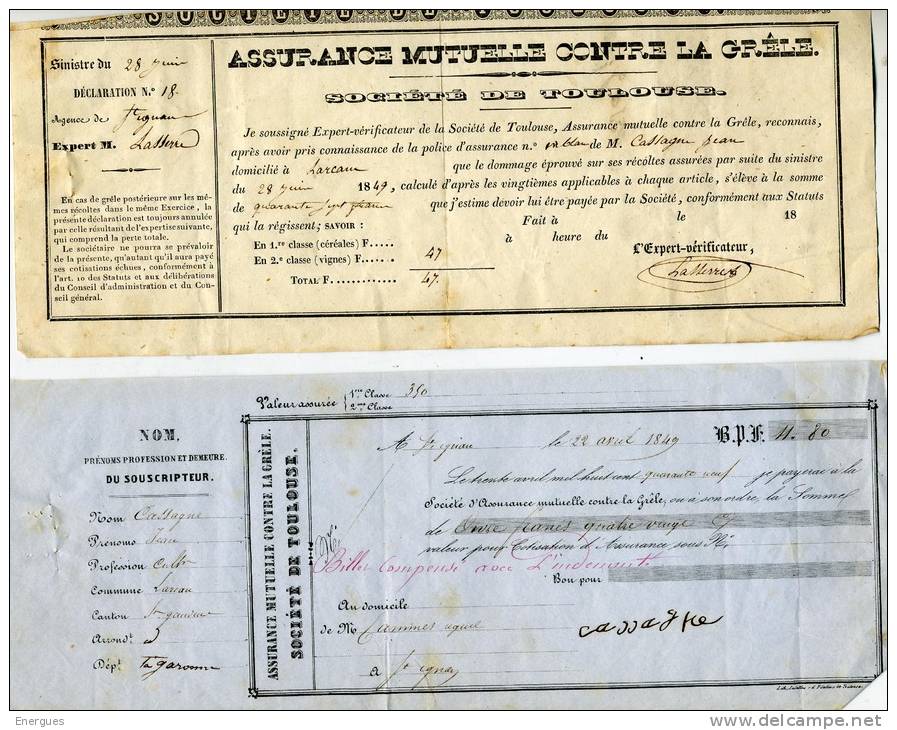 SOCIÉTÉ DE TOULOUSE.
Sinistre du 28 juin
DÉCLARATION N.° 18
Agence de St ignan
Expert M. Lasserre
En cas de grêle postérieure sur les mê-
mes récoltes dans le même Exercice, la
présente déclaration est toujours annulée
par celle résultant de l'expertise suivante,
qui comprend la perte totale.
Le sociétaire ne pourra se prévaloir
de la présente, qu'autant qu'il aura payé
ses cotisations échues, conformément à
l'art. 10 des Statuts et aux délibérations
du Conseil d'administration et du Con-
seil général.
ASSURANCE MUTUELLE CONTRE LA GRÊLE.
SOCIÉTÉ DE TOULOUSE.
Je soussigné Expert-vérificateur de la Société de Toulouse, Assurance mutuelle contre la Grêle, reconnais,
après avoir pris connaissance de la police d'assurance n.° en blanc de M. Cassagne jean
domicilié à Larcau que le dommage éprouvé sur ses récoltes assurées par suite du sinistre
du 28 juin 1849, calculé d'après les vingtièmes applicables à chaque article, s'élève à la somme
de quarante sept francs que j'estime devoir lui être payée par la Société, conformément aux Statuts
qui la régissent; SAVOIR :
Fait à le 18
à heure du
En 1.re classe (céréales) F.....
En 2.e classe (vignes) F..... 47
TOTAL F............ 47.
L'Expert-vérificateur,
Lasserre
Valeur assurée { 1ere Classe 350
2me Classe
NOM,
PRÉNOMS PROFESSION ET DEMEURE.
DU SOUSCRIPTEUR.
Nom Cassagne
Prenoms Jean
Profession Cultr
Commune Larcau
Canton St gaudens
Arrondt d
Dépt hte garonne
ASSURANCE MUTUELLE CONTRE LA GRÊLE.
SOCIÉTÉ DE TOULOUSE.
A St ignan le 22 avril 1849 B.P.F. 11.80
Le trente avril mil huit cent quarante neuf je payerai à la
Société d'Assurance mutuelle contre la Grêle, ou à son ordre, la Somme
de Onze francs quatre vingt
valeur pour Cotisation d'Assurance sous No
Billet Compensé avec L'indemnité
Bon pour
Au domicile
de Mr
à St ignan
cassagne
Energues
www.delcampe.net